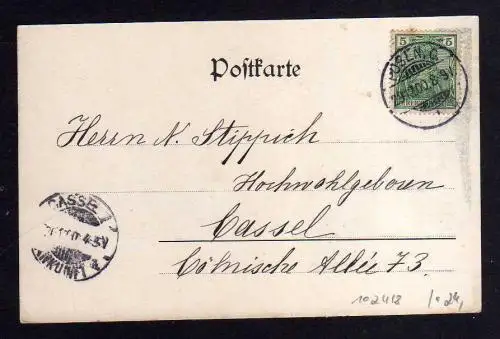 5 5
Postkarte
Herrn N. Stippich
Hochwohlgeboren
Cassel
Cölnische Allée 73.
CASSEL
102418